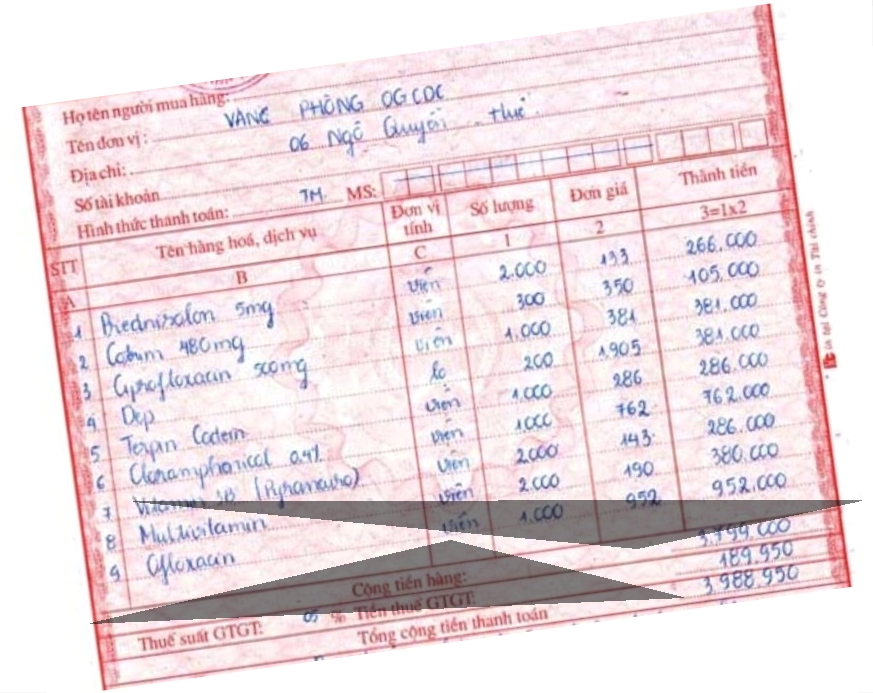 Họ tên người mua hàng:
Tên đơn vị: VĂNG PHÒNG OGCDC
Địa chỉ: 06 Ngô Quyền Huế
Số tài khoản
Hình thức thanh toán: TM. MS:
STT Tên hàng hoá, dịch vụ Đơn vị tính Số lượng Đơn giá Thành tiền
A B C 1 2 3=1x2
1 Prednisolon 5mg viên 2.000 133 266.000
2 Cotrim 480mg viên 300 350 105.000
3 Ciprofloxacin 500mg viên 1.000 381 381.000
4 Dep lo 200 1.905 381.000
5 Terpin Codein viên 1.000 286 286.000
6 Cloramphenicol 0,4% viên 1000 762 762.000
7 Vitamin viên 2.000 143 286.000
8 Multivitamin viên 2.000 190 380.000
9 Ofloxacin viên 1.000 952 952.000
Cộng tiền hàng: 3.799.000
Thuế suất GTGT: 05 % Tiền thuế GTGT: 189.950
Tổng cộng tiền thanh toán 3.988.950
in tại Công ty in Tài chính